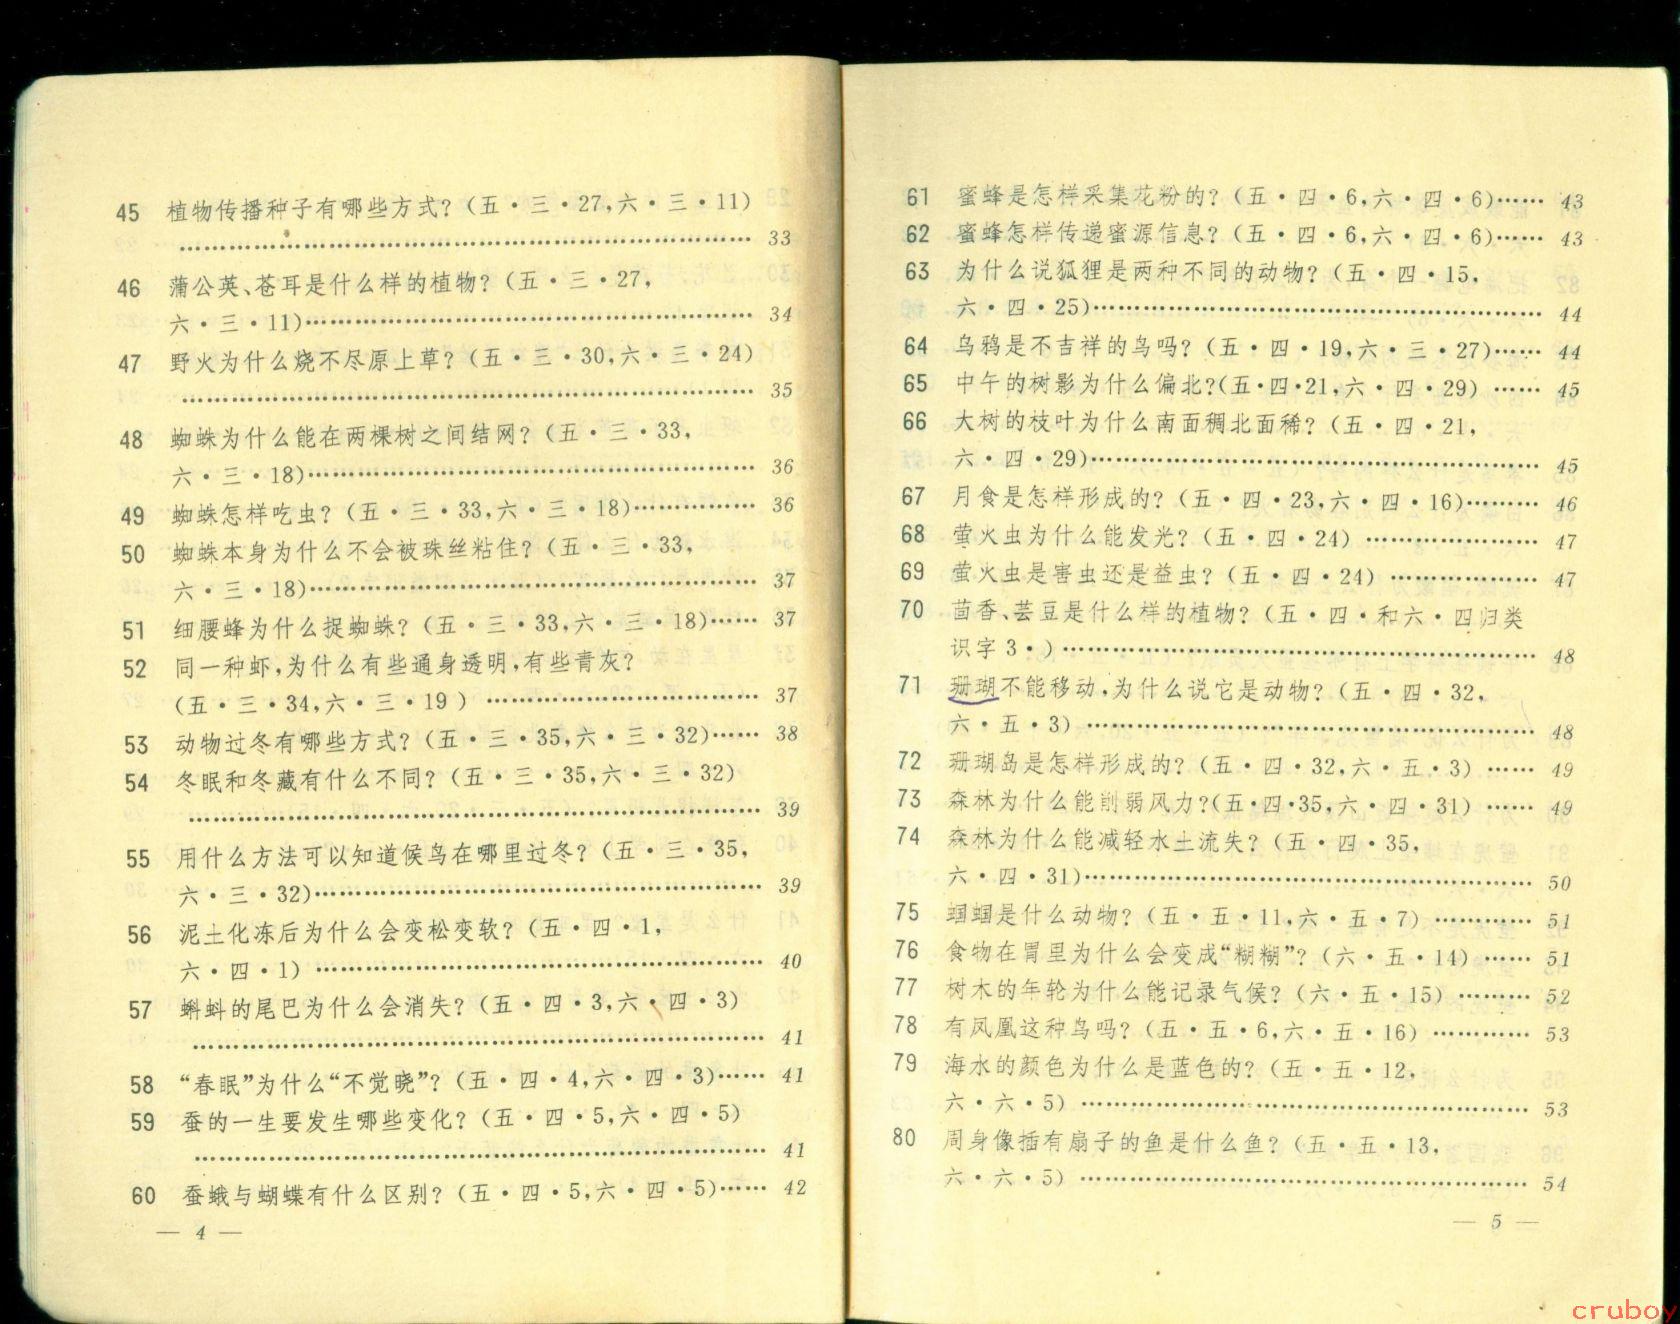 45 植物传播种子有哪些方式?(五·三·27,六·三·11)
………………………………………… 33
46 蒲公英、苍耳是什么样的植物?(五·三·27,
六·三·11)………………………………… 34
47 野火为什么烧不尽原上草?(五·三·30,六·三·24)
………………………………………… 35
48 蜘蛛为什么能在两棵树之间结网?(五·三·33,
六·三·18)………………………………… 36
49 蜘蛛怎样吃虫?(五·三·33,六·三·18)………… 36
50 蜘蛛本身为什么不会被珠丝粘住?(五·三·33,
六·三·18)………………………………… 37
51 细腰蜂为什么捉蜘蛛?(五·三·33,六·三·18)…… 37
52 同一种虾,为什么有些通身透明,有些青灰?
(五·三·34,六·三·19) ………………………… 37
53 动物过冬有哪些方式?(五·三·35,六·三·32)…… 38
54 冬眠和冬藏有什么不同?(五·三·35,六·三·32)
………………………………………… 39
55 用什么方法可以知道候鸟在哪里过冬?(五·三·35,
六·三·32)………………………………… 39
56 泥土化冻后为什么会变松变软?(五·四·1,
六·四·1) ………………………………… 40
57 蝌蚪的尾巴为什么会消失?(五·四·3,六·四·3)
………………………………………… 41
58 “春眠”为什么“不觉晓”?(五·四·4,六·四·3)…… 41
59 蚕的一生要发生哪些变化?(五·四·5,六·四·5)
………………………………………… 41
60 蚕蛾与蝴蝶有什么区别?(五·四·5,六·四·5)…… 42
— 4 —
61 蜜蜂是怎样采集花粉的?(五·四·6,六·四·6)…… 43
62 蜜蜂怎样传递蜜源信息?(五·四·6,六·四·6)…… 43
63 为什么说狐狸是两种不同的动物?(五·四·15,
六·四·25)………………………………… 44
64 乌鸦是不吉祥的鸟吗?(五·四·19,六·三·27)…… 44
65 中午的树影为什么偏北?(五·四·21,六·四·29) …… 45
66 大树的枝叶为什么南面稠北面稀?(五·四·21,
六·四·29)………………………………… 45
67 月食是怎样形成的?(五·四·23,六·四·16)……… 46
68 萤火虫为什么能发光?(五·四·24) ……………… 47
69 萤火虫是害虫还是益虫?(五·四·24) …………… 47
70 茴香、芸豆是什么样的植物?(五·四·和六·四归类
识字3·)………………………………… 48
71 珊瑚不能移动,为什么说它是动物?(五·四·32,
六·五·3) ………………………………… 48
72 珊瑚岛是怎样形成的?(五·四·32,六·五·3) …… 49
73 森林为什么能削弱风力?(五·四·35,六·四·31) …… 49
74 森林为什么能减轻水土流失?(五·四·35,
六·四·31)………………………………… 50
75 蝈蝈是什么动物?(五·五·11,六·五·7) ………… 51
76 食物在胃里为什么会变成“糊糊”?(六·五·14) …… 51
77 树木的年轮为什么能记录气候?(六·五·15) ……… 52
78 有凤凰这种鸟吗?(五·五·6,六·五·16) ………… 53
79 海水的颜色为什么是蓝色的?(五·五·12,
六·六·5) ………………………………… 53
80 周身像插有扇子的鱼是什么鱼?(五·五·13,
六·六·5) ………………………………… 54
— 5 —
cruboy